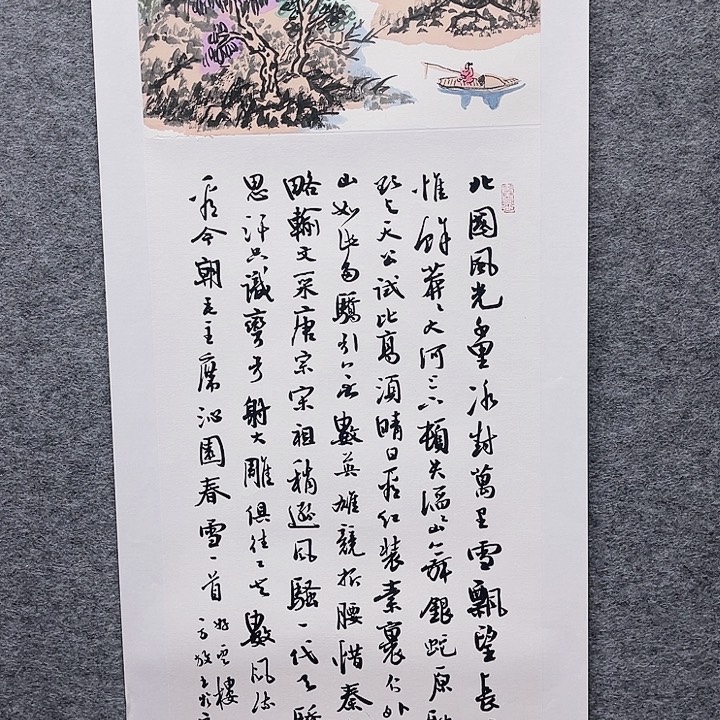 北國風光千里冰封萬里雪飄望長
惟餘莽々大河上下頓失滔々山舞銀蛇原馳
欲与天公試比高須晴日看红装素裹分外
山如此多驕引无數英雄競折腰惜秦
略輸文采唐宗宋祖稍遜风騷一代天驕
思汗只識彎弓射大雕俱往矣數风流
看今朝毛主席沁園春雪一首